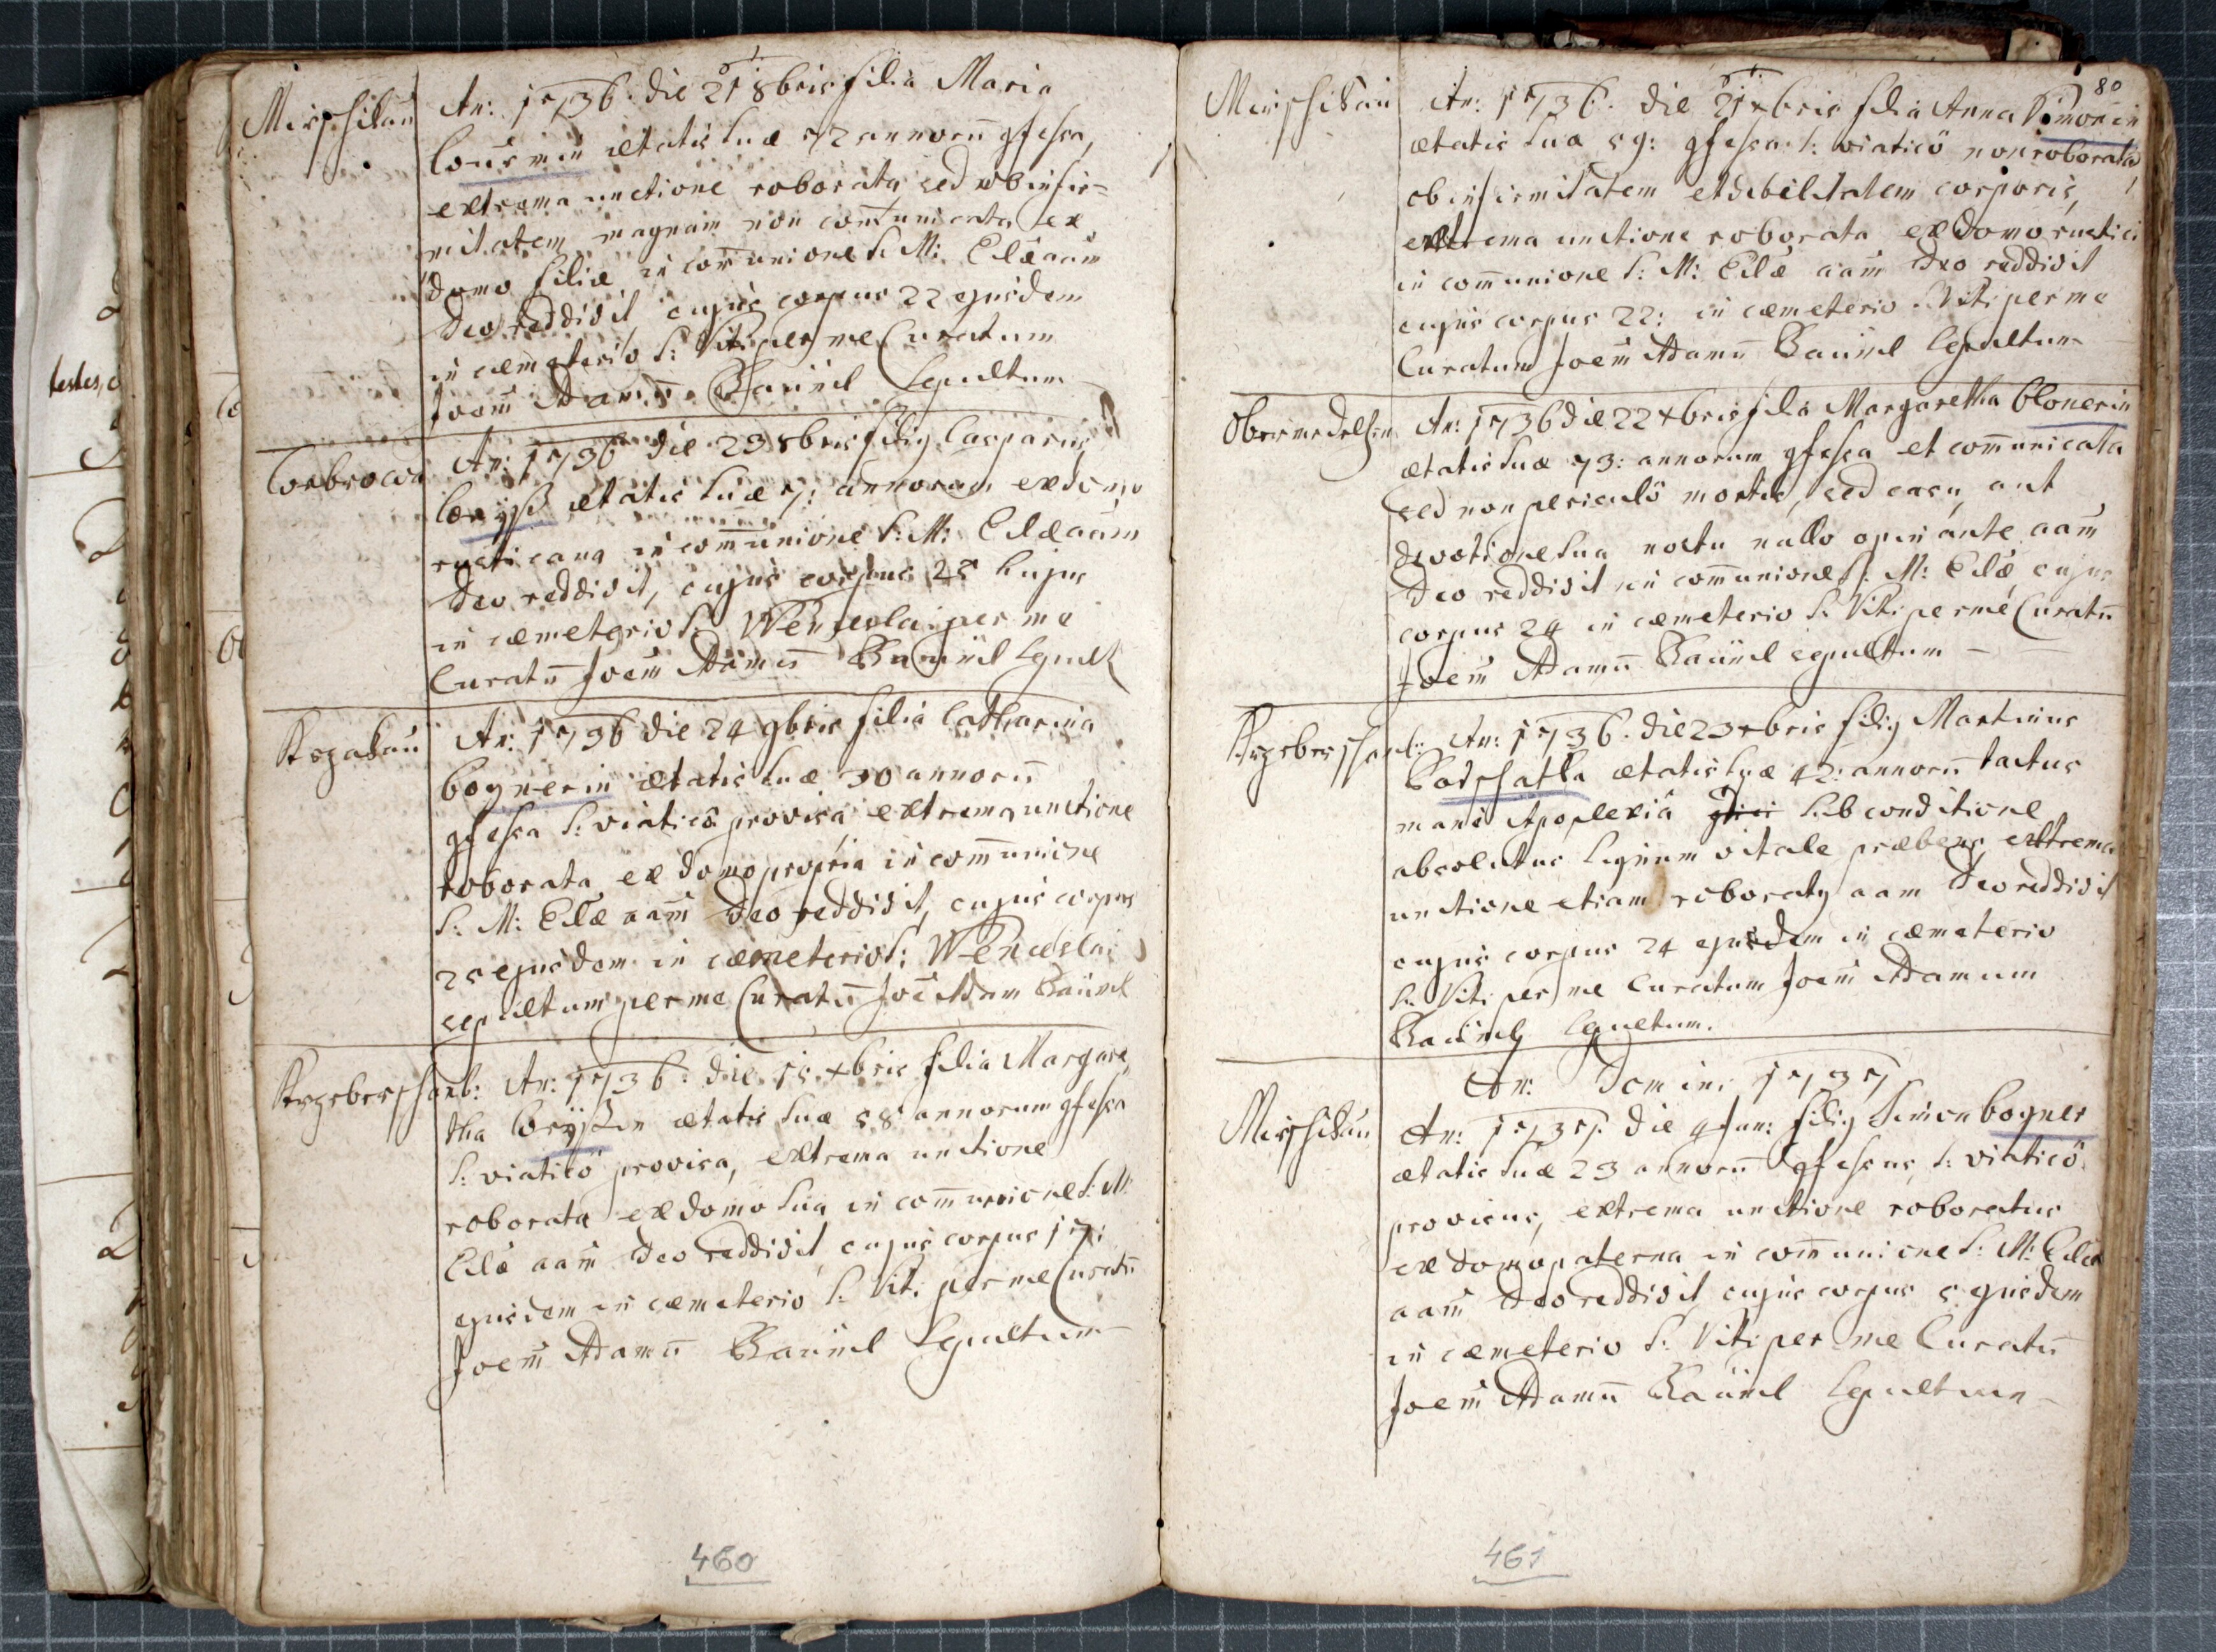 testes, c
Mirschikau
An: 1736. die 21 8bris filia Maria
ætatis suæ 72 annorū gfessa,
extrema unctione roborata sed ob infir=
mitatem magnam non com̄unicata ex
domo filiæ in com̄unione S. M: Eclæ aam̄
Deo reddidit cujus corpus 22 ejusdem
in cæmeterio S: Viti per me Curatum
Joem̄ Adamū Baüml Sepultum
An: 1736 die 23 8bris filiq Casparus
ætatis suæ 7: annorum ex domo
rusticana in com̄unione S: M: Eclæ aam̄
Deo reddidit, cujus corpus 25 hujus
in cæmeterio S. Wenceslai per me
Curatū Joem̄ Adamū Baüml Sepult
An: 1736 die 24 9bris filia Catharina
Bognerin ætatis suæ 30 annorū
gfessa S: viaticô provisa extrema unctione
roborata, ex domo propria in com̄unione
S. M: Eclæ aam̄ Deo reddidit, cujus corpus
25 ejusdem in cæmeterio S: Wenceslai
sepultum per me Curatū Joē Adam Baüml
Przeberschenl: An: 1736. die 15 xbris filia Margare
tha ætatis suæ 58 annorum gfessa
S: viaticô provisa, extrema unctione
roborata ex domo sua in com̄unione S. M:
Eclæ aam̄ Deo reddidit, cujus corpus 17:
ejusdem in cæmeterio S. Viti per me Curatū
Joem̄ Adamū Baüml Sepultum
460
80
Mirschikau
An: 1736. die 21 xbris filia Anna Simonin
ætatis suæ 59: gfessa S: viaticô non roborata
ob infirmitatem et debilitatem corporis,
extrema unctione roborata ex domo rustici
in com̄unione S: M: Eclæ aam̄ Deo reddidit
cujus corpus 22: in cæmeterio S. Viti per me
Curatum Joem̄ Adamū Baüml Sepultum
An: 1736 die 22 xbris filia Margaretha
ætatis suæ 73: annorum gfessa et com̄unicata
sed non periculô mortis, sed casu, aut
devotione sua noctu nullo opinante aam̄
Deo reddidit in com̄unione S. M: Eclæ cujus
corpus 24 in cæmeterio S. Viti per me Curatū
Joem̄ Adamū Baüml sepultum
Przeberschenl: An: 1736. die 23 xbris filiq Martinus
ætatis suæ 42: annorū tactus
manè Apoplexiâ sub conditione
absolutus signum vitale præbens, extrema
unctione etiam roboratq aam Deo reddidit
cujus corpus 24 ejusdem in cæmeterio
S. Viti per me Curatum Joem̄ Adamum
Baüml Sepultum.
An: Domini 1737
Mirschikau
An: 1737. die 4 Jan: filiq Simon Bogner
ætatis suæ 23 annorū gfessus, S: viaticô
provisus, extrema unctione roboratus
ex domo paterna in com̄unione S: M: Eclæ
aam̄ Deo reddidit cujus corpus 5 ejusdem
in cæmeterio S: Viti per me Curatū
Joem̄ Adamū Baüml Sepultum
461